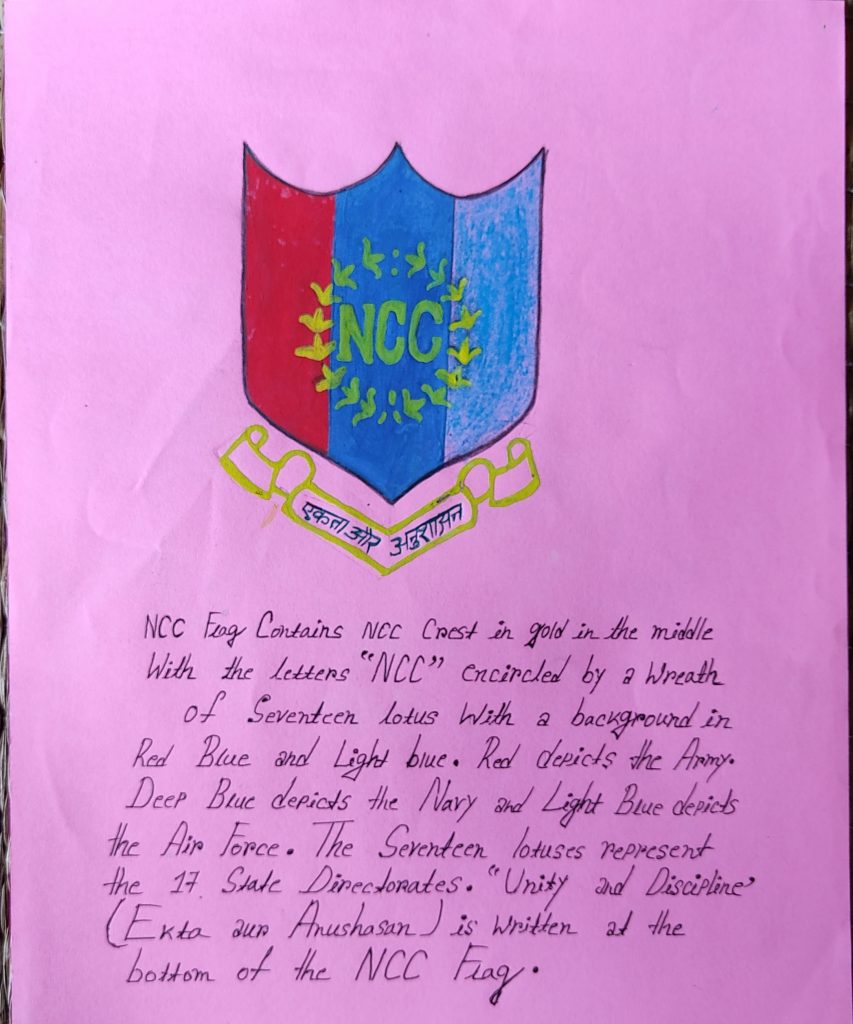 NCC
एकता और अनुशासन
NCC Flag Contains NCC Crest in gold in the middle
With the letters "NCC" encircled by a Wreath
of Seventeen lotus With a background in
Red Blue and Light blue. Red depicts the Army.
Deep Blue depicts the Navy and Light Blue depicts
the Air Force. The Seventeen lotuses represent
the 17 State Directorates. "Unity and Discipline"
(Ekta aur Anushasan) is Written at the
bottom of the NCC Flag.